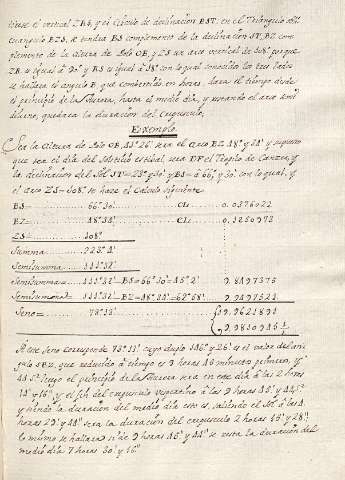 tirese el vertical ZBS, y el Circulo de declinacion BST. en el Triangulo obli
cuangulo BZS, se tendrà BS complemento de la declinacion ST, BZ com
plemento de la altura de Polo OB, y ZS un arco vertical de 108° porque
ZR es igual à 90° y RS es igual à 18° con lo qual conocidos los tres lados
se hallarà el angulo B, que convertido en horas, darà el tiempo desde
el principio de la Aurora, hasta el medio dia, y restando el arco semi
diurno, quedarà la duracion del Crepusculo.
Exemplo
Sea la Altura de Polo OB, 41° 26' serà el arco BZ 48° y 34' y supuesto
que sea el dia del Solsticio estival, serà DF el Tropico de Cancer, y
la declinacion del Sol ST=23° y 30' y BS= à 66° y 30' con lo qual, y
el arco ZS=108° se hace el Calculo siguiente
BS= 66° 30' CL. 0. 0376022
BZ= 48° 34' CL. 0. 1250972
ZS= 108°
Summa 223° 4'
Semisumma 111° 32'
Semisumma= 111° 32' – BS=66° 30'=45° 2' 9. 8497375
Semisumma= 111° 32' – BZ=48° 34'=62° 58' 9. 9497521
Seno= 73° 13' 19. 9621891
9. 9810945 ½
A este seno corresponde 73° 13' cuyo duplo 146° y 26' es el valor del an
gulo SBZ, que reducido à tiempo es 9 horas 45 minutos primeros, y
44 S.s luego el principio de la Aurora serà en este dia à las 2 horas
14' y 16'' y el fin del crepusculo vespertino à las 9 horas 45' y 44 S.s
y siendo la duracion del medio dia esto es, saliendo el Sol à las 4
horas 29' y 44'' serà la duracion del crepusculo 2 horas 15' y 28''
lo mismo se hallarà si de 9 horas 45' y 44'' se resta la duracion del
medio dia 7 horas 30' y 16''